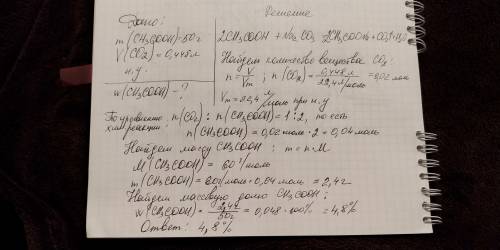 Дано:
m(CH₃COOH)=50г
V(CO₂)=0,448л
н.у.
w(CH₃COOH)-?
Решение
2CH₃COOH + Na₂CO₃ = 2CH₃COONa + CO₂↑+H₂O
Найдем количество вещества CO₂:
n = V/Vm; n(CO₂) = 0,448л/22,4л/моль = 0,02 моль
Vm = 22,4 л/моль при н.у
По уравнению хим реакции: n(CO₂) : n(CH₃COOH) = 1:2, то есть
n(CH₃COOH) = 0,02 моль · 2 = 0,04 моль
Найдем массу CH₃COOH : m = n·M
M(CH₃COOH) = 60 г/моль
m(CH₃COOH) = 60г/моль · 0,04 моль = 2,4г
Найдем массовую долю CH₃COOH :
w(CH₃COOH) = 2,4г/50г = 0,048 · 100% = 4,8%
Ответ: 4,8%